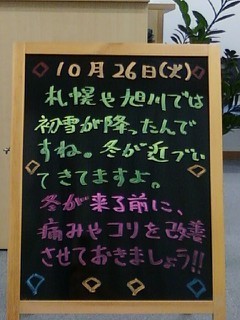 10月26日(火)
札幌や旭川では
初雪が降ったんで
すね。冬が近づい
てきてますよ。
冬が来る前に、
痛みやコリを改善
させておきましょう!!